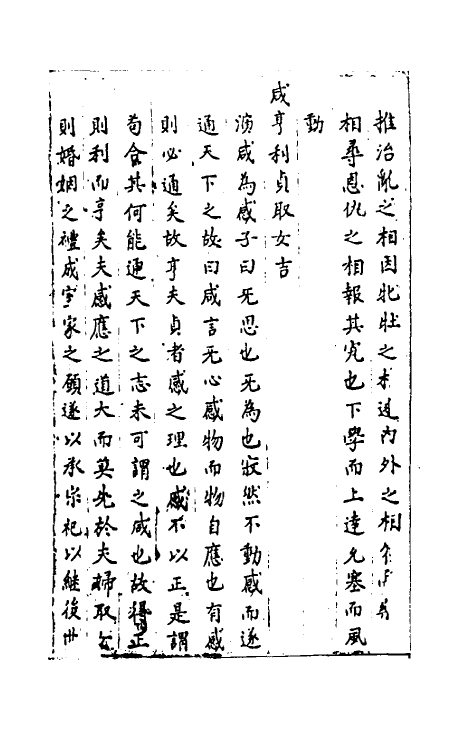 推治亂之相因牝牡之相逆內外之相
相尋恩仇之相報其究也下學而上達允塞而風
動
咸亨利貞取女吉
演咸為感子曰无思也无為也寂然不動感而遂
通天下之故曰咸言无心感物而物自應也有感
則必通矣故亨夫貞者感之理也感不以正是謂
苟合其何能通天下之志未可謂之咸也故得正
則利而亨矣夫感應之道大而莫先於夫婦取
則婚姻之禮成室家之願遂以承宗祀以繼後世